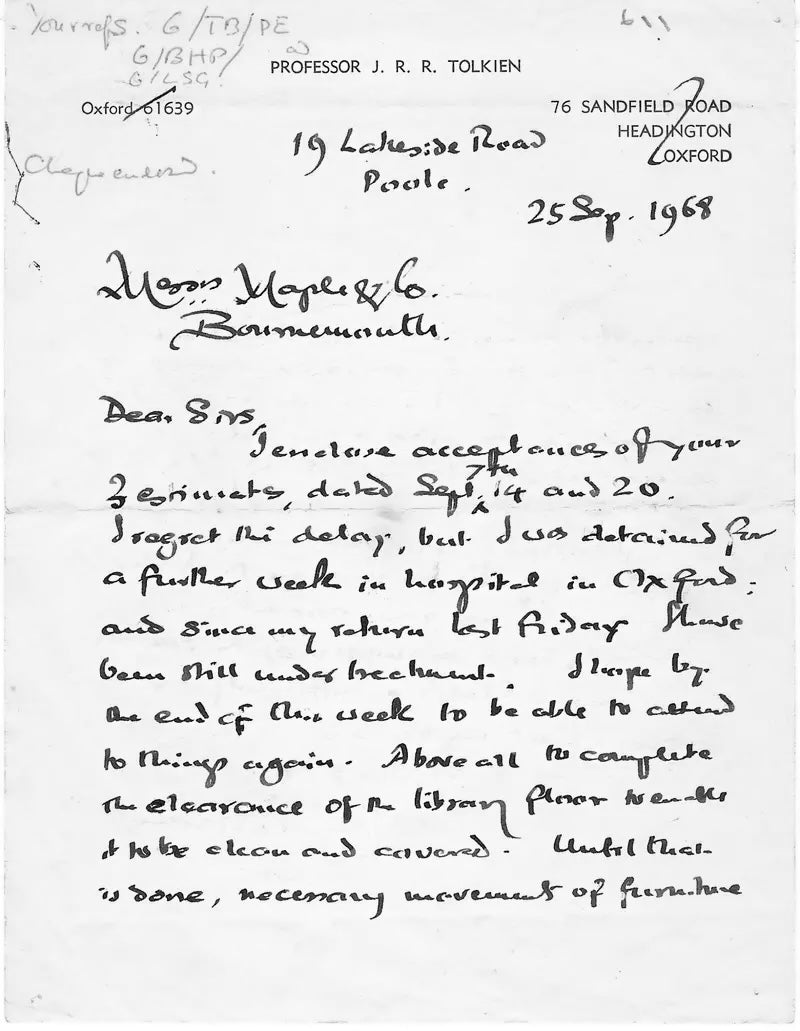 Your refs. G/TB/PE
G/BHP/
G/LSG.
611
PROFESSOR J. R. R. TOLKIEN
Oxford 61639
76 SANDFIELD ROAD
HEADINGTON
OXFORD
19 Lakeside Road
Poole.
25 Sep. 1968
Cheque enclosed.
Messrs Maple & Co.
Bournemouth.
Dear Sirs,
I enclose acceptances of your
3 estimates, dated Sept. 7th 14 and 20.
I regret the delay, but I was detained for
a further week in hospital in Oxford;
and since my return last Friday I have
been still under treatment. I hope by
the end of this week to be able to attend
to things again. Above all to complete
the clearance of the library floor to enable
it to be clean and covered. Until that
is done, necessary movements of furniture